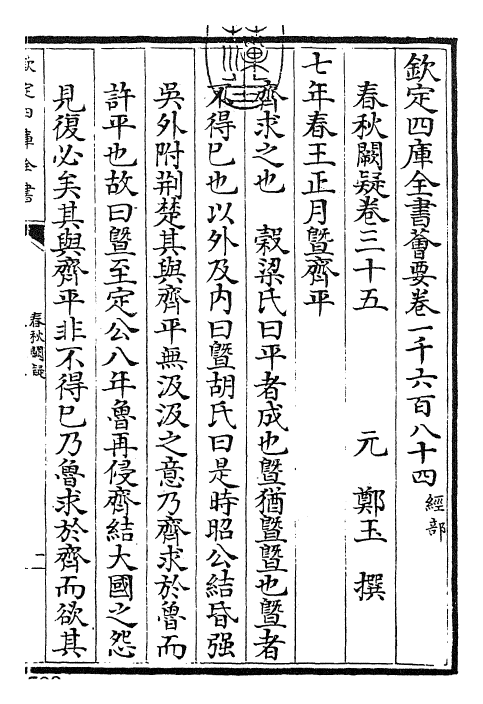 欽定四庫全書薈要卷一千六百八十四 經部
春秋闕疑卷三十五 元 鄭玉 撰
七年春王正月暨齊平
齊求之也 穀梁氏曰平者成也暨猶暨暨也暨者
不得已也以外及内曰暨胡氏曰是時昭公結昏强
吳外附荆楚其與齊平無汲汲之意乃齊求於魯而
許平也故曰暨至定公八年魯再侵齊結大國之怨
見復必矣其與齊平非不得已乃魯求於齊而欲其
欽定四庫全書
春秋闕疑